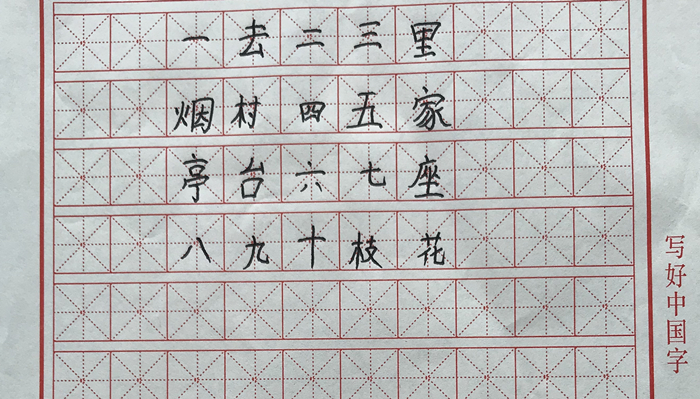 一去二三里
烟村四五家
亭台六七座
八九十枝花
写好中国字